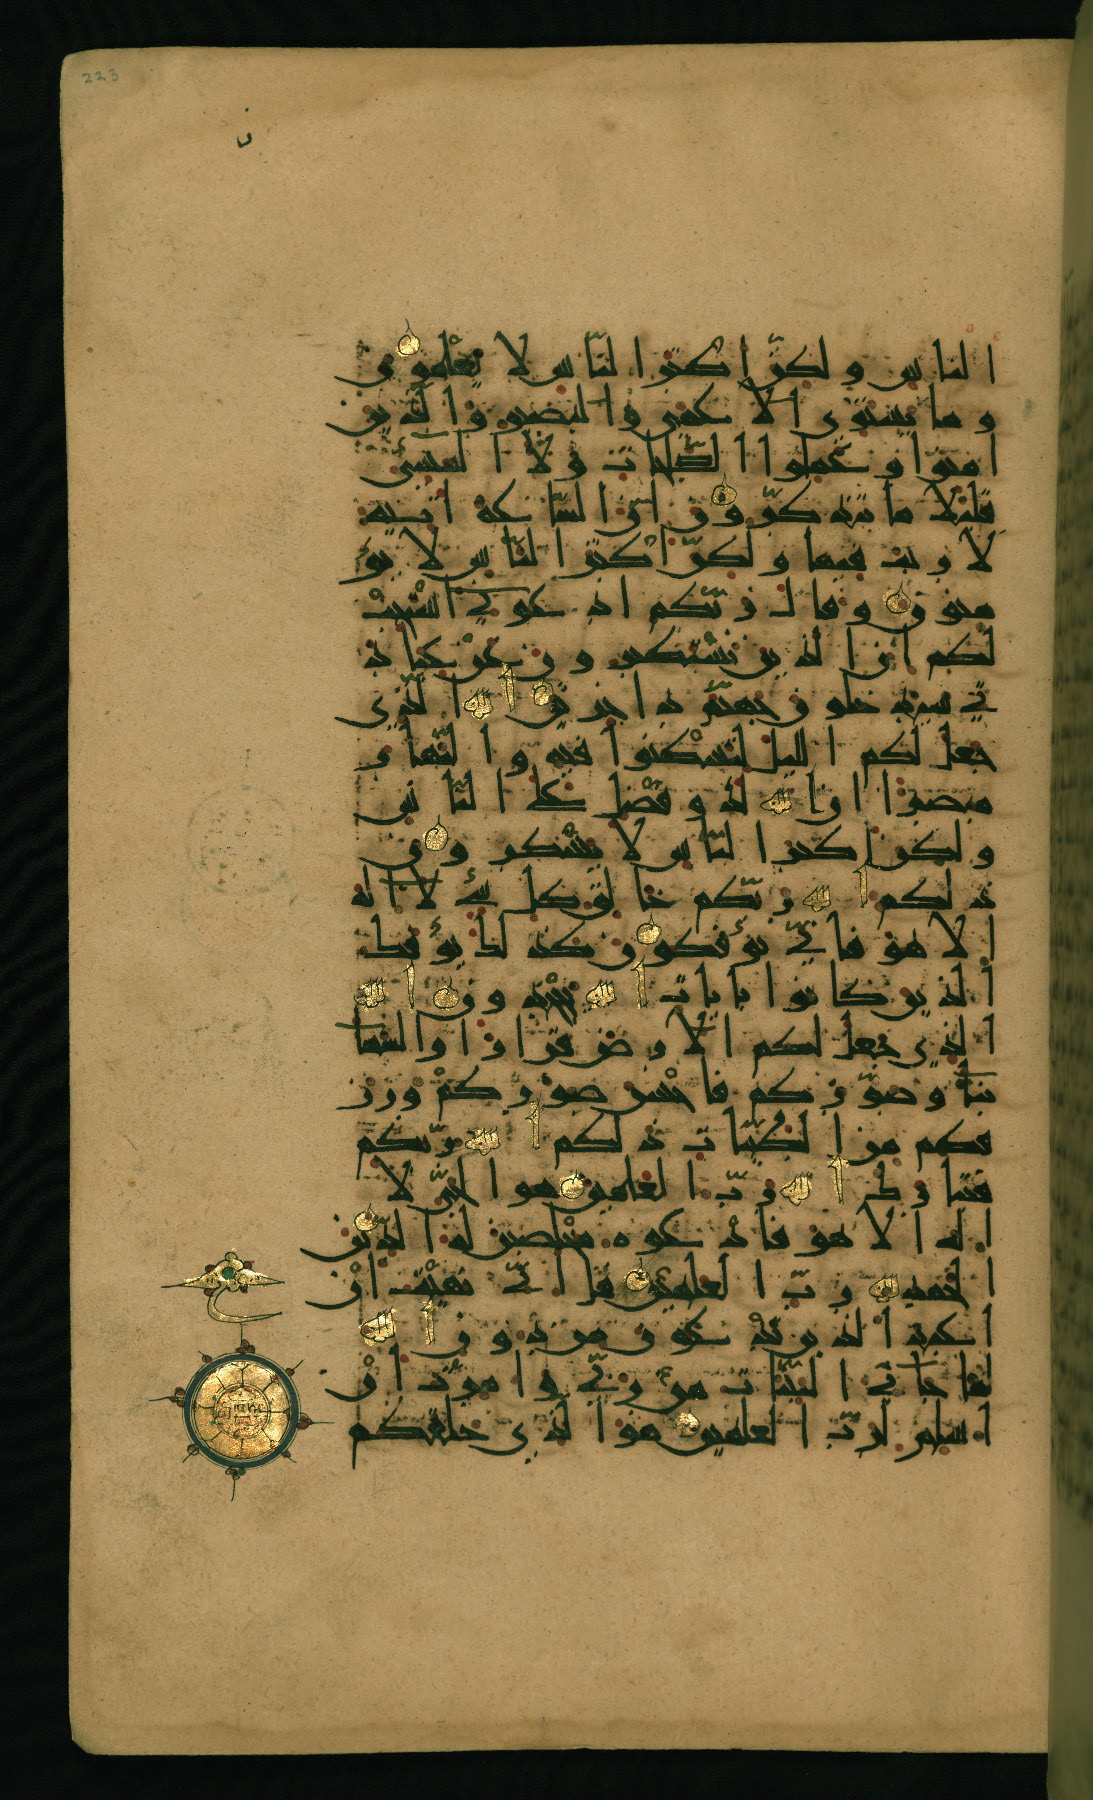 223
ن
الناس ولكن اكثر الناس لا يعلمون
وما يستوى الاعمى والبصير والذين
امنوا وعملوا الصلحات ولا المسئ
قليلا ما تتذكرون ان الساعة لاتية
لا ريب فيها ولكن اكثر الناس لا يؤ
منون وقال ربكم ادعوني استجب
لكم ان الذين يستكبرون عن عباد
تي سيدخلون جهنم داخرين الله الذي
جعل لكم الليل لتسكنوا فيه والنهار
مبصرا ان الله لذو فضل على الناس
ولكن اكثر الناس لا يشكرون
ذلكم الله ربكم خالق كل شئ لا اله
الا هو فاني تؤفكون كذلك يؤفك
الذين كانوا بايات الله يجحدون الله
الذي جعل لكم الارض قرارا والسما
بناء وصوركم فاحسن صوركم ورز
قكم من الطيبات ذلكم الله ربكم
فتبارك الله رب العلمين هو الحي لا
اله الا هو فادعوه مخلصين له الدين
الحمد لله رب العلمين قل اني نهيت ان
اعبد الذين تدعون من دون الله
لما جاني البينات من ربي وامرت ان
اسلم لرب العلمين هو الذي خلقكم